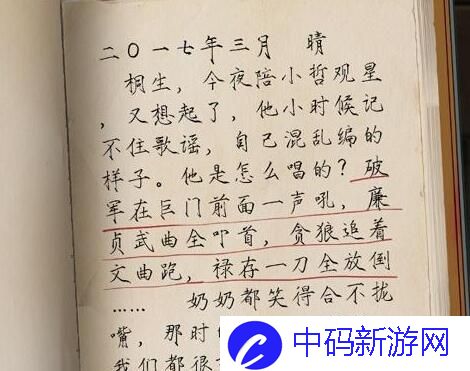 二〇一七年三月 晴
桐生，今夜陪小哲观星
，又想起了，他小时候记
不住歌谣，自己混乱编的
样子。他是怎么唱的？破
军在巨门前面一声吼，廉
贞武曲全叩首，贪狼追着
文曲跑，禄存一刀全放倒
…… 奶奶都笑得合不拢
嘴，那时
我们都很
中码新游网